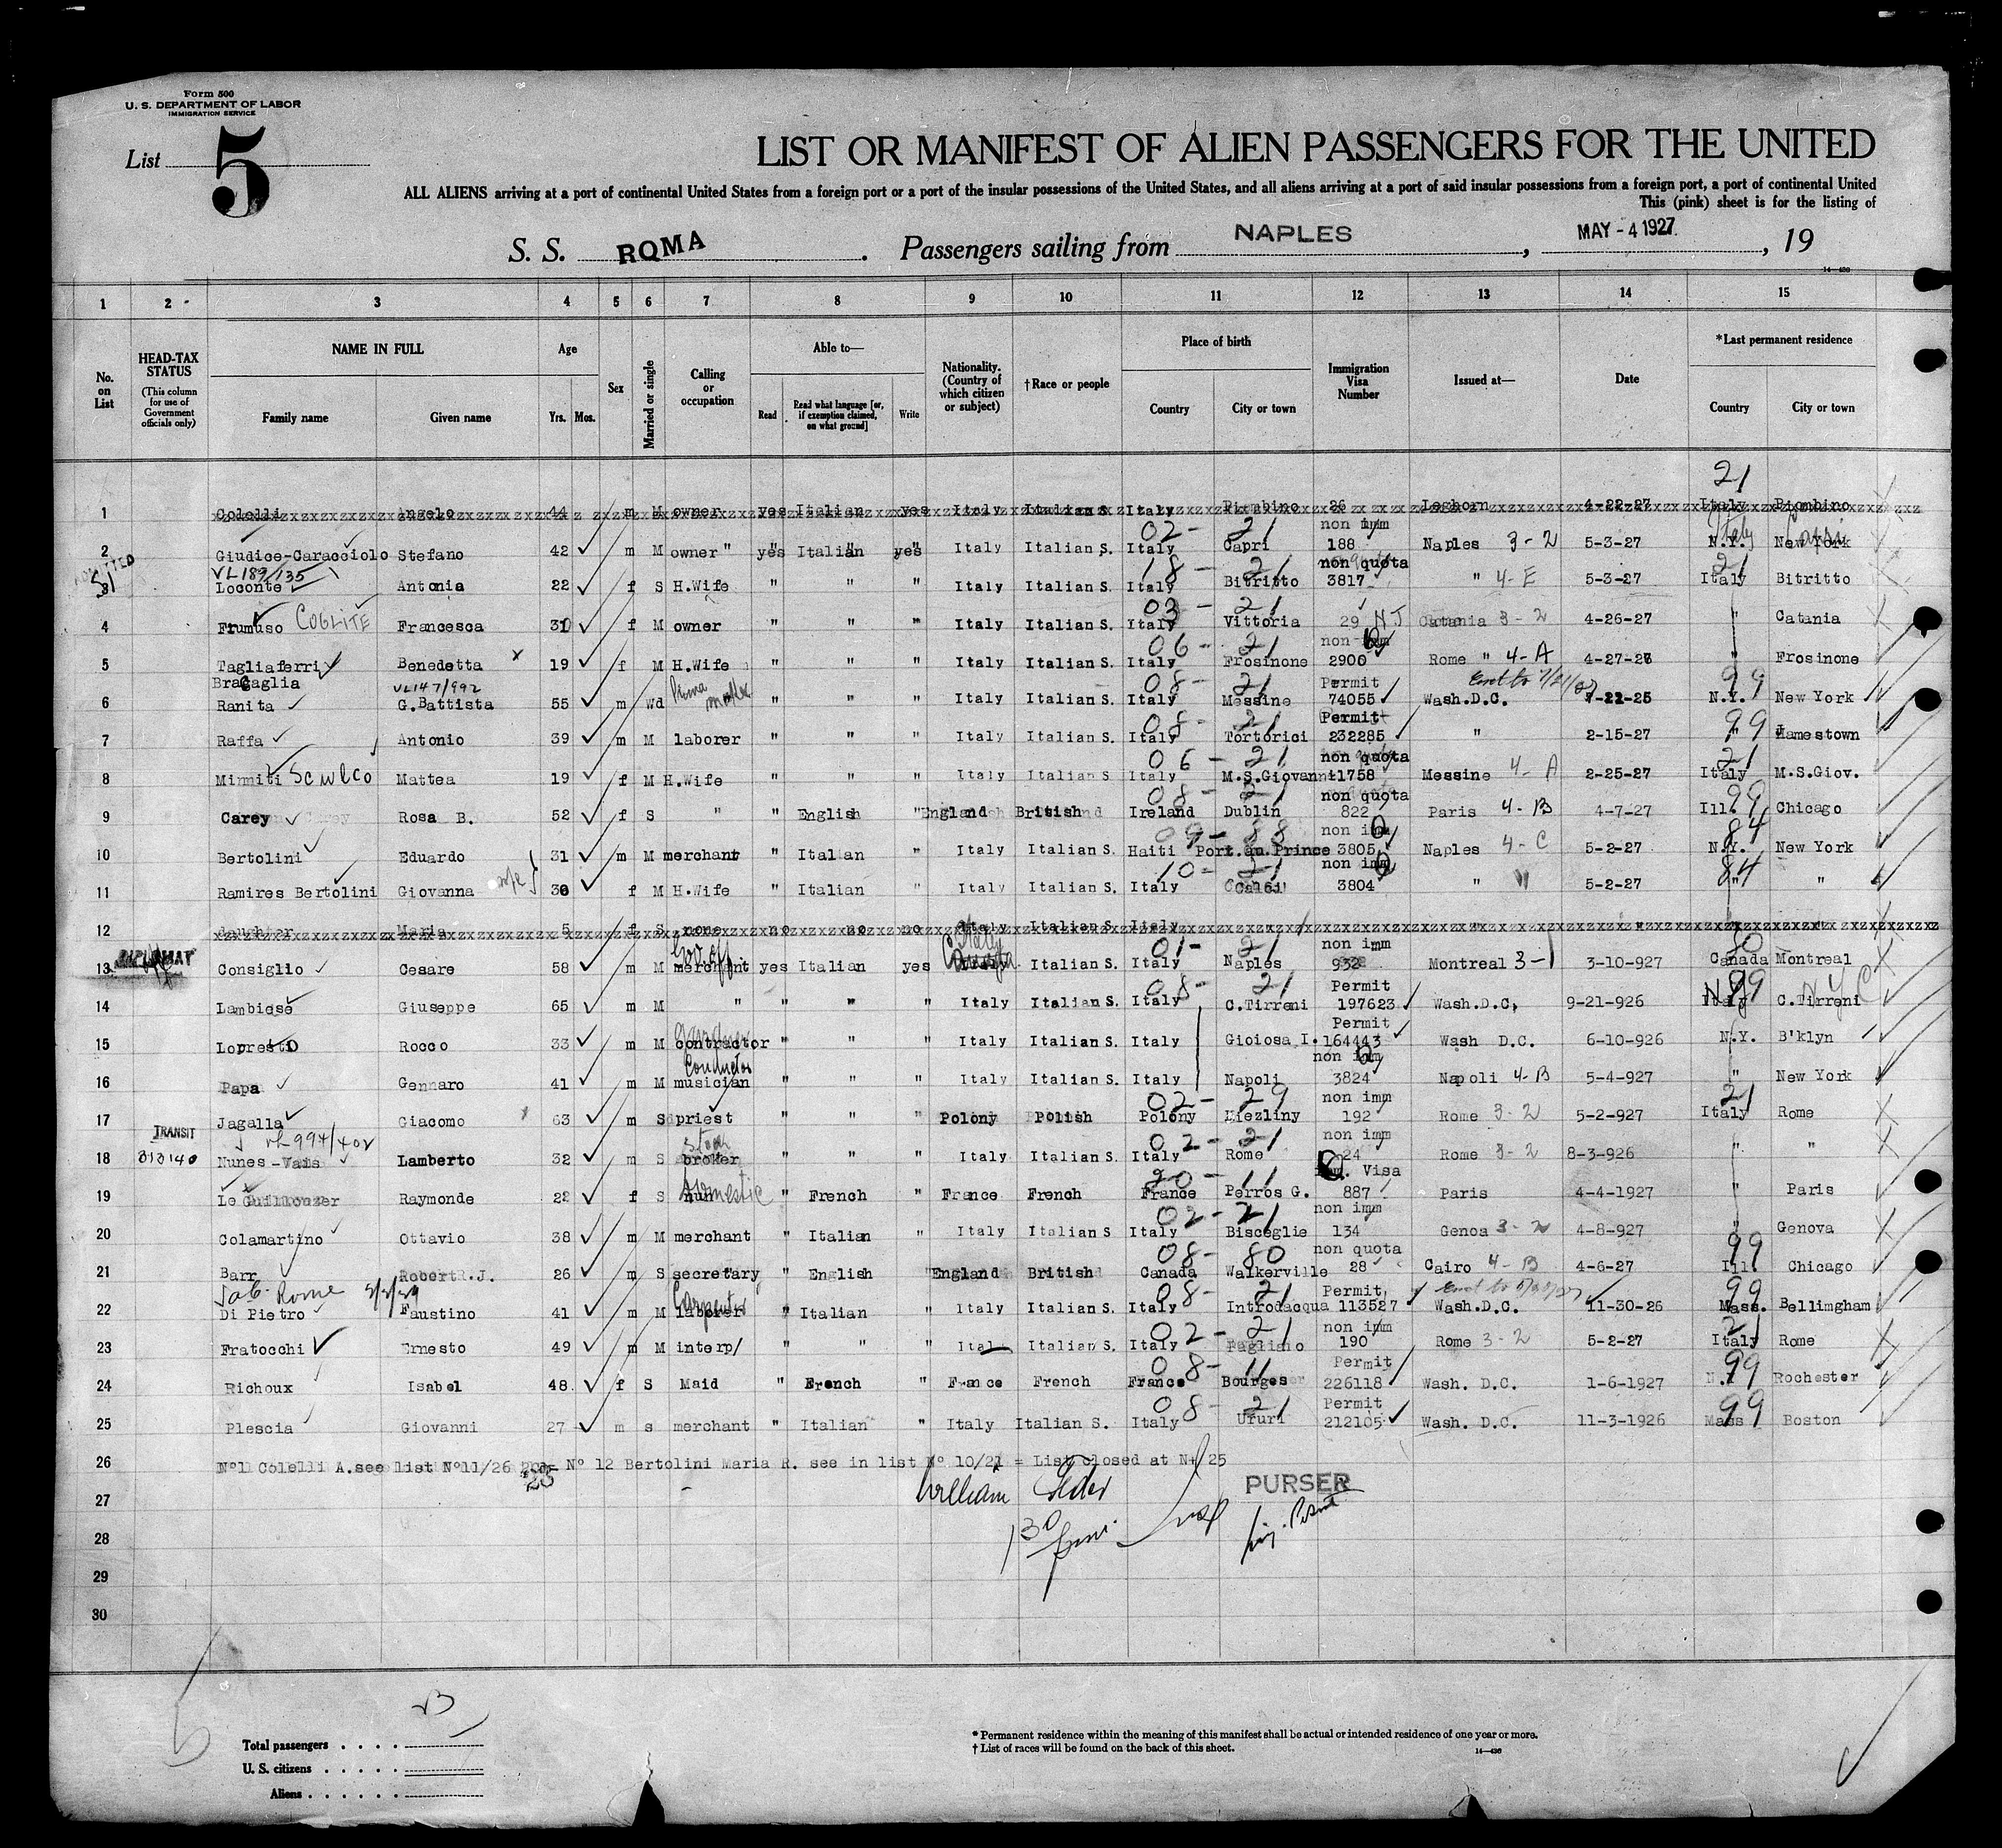 Form 500
U. S. DEPARTMENT OF LABOR
IMMIGRATION SERVICE
List 5
LIST OR MANIFEST OF ALIEN PASSENGERS FOR THE UNITED
ALL ALIENS arriving at a port of continental United States from a foreign port or a port of the insular possessions of the United States, and all aliens arriving at a port of said insular possessions from a foreign port, a port of continental United
This (pink) sheet is for the listing of
S. S. ROMA . Passengers sailing from NAPLES , MAY - 4 1927 , 19
14—430
1 2 3 4 5 6 7 8 9 10 11 12 13 14 15
No. on List
HEAD-TAX STATUS (This column for use of Government officials only)
NAME IN FULL Family name Given name
Age Yrs. Mos.
Sex
Married or single
Calling or occupation
Able to— Read Read what language [or, if exemption claimed, on what ground] Write
Nationality. (Country of which citizen or subject)
†Race or people
Place of birth Country City or town
Immigration Visa Number
Issued at—
Date
*Last permanent residence Country City or town
21
1 Colelli Angelo 44 m M owner yes Italian yes Italy Italian S. Italy Piombino 26 Leghorn 4-22-27 Italy Piombino
02 - 21 non imm Italy
2 Giudice-Caracciolo Stefano 42 m M owner " yes Italian yes Italy Italian S. Italy Capri 188 Naples 3-2 5-3-27 N.Y. New York
ADMITTED VL189/135 18 - 21 non quota 21
3 Loconte Antonia 22 f S H.Wife " " " Italy Italian S. Italy Bitritto 3817 " 4-E 5-3-27 Italy Bitritto
03 - 21
4 Frumuso COGLITE Francesca 30 f M owner " " " Italy Italian S. Italy Vittoria 29 NJ Catania 3-2 4-26-27 " Catania
06 - 21 non imm
5 Tagliaferri Benedetta x 19 f M H.Wife " " " Italy Italian S. Italy Frosinone 2900 Rome " 4-A 4-27-26 " Frosinone
Bragaglia VL147/992 08 - 21 Permit 99
6 Ranita G.Battista 55 m Wd " " " Italy Italian S. Italy Messine 74055 Wash.D.C. 7-22-25 N.Y. New York
08 - 21 Permit 99
7 Raffa Antonio 39 m M laborer " " " Italy Italian S. Italy Tortorici 232285 " 2-15-27 " Jamestown
06 - 21 non quota 21
8 Minniti Sculco Mattea 19 f M H.Wife " " " Italy Italian S Italy M.S.Giovanni 1758 Messine 4-A 2-25-27 Italy M.S.Giov.
08 - 21 non quota 99
9 Carey Rosa B. 52 f S " " English " England British Ireland Dublin 822 Paris 4-B 4-7-27 Ill. Chicago
09 - 88 non imm 84
10 Bertolini Eduardo 31 m M merchant " Italian Italy Italian S. Haiti Port.au.Prince 3805 Naples 4-C 5-2-27 N.Y. New York
10 - 21 non imm 84
11 Ramires Bertolini Giovanna 30 f M H.Wife " Italian Italy Italian S. Italy 3804 " " 5-2-27 " "
12 daughter Maria 5 f S none no no no Italy Italian S. Italy
DIPLOMAT Gov. off. Italy 01 - 21 non imm 80
13 Consiglio Cesare 58 m M merchant yes Italian yes Italian S. Italy Naples 932 Montreal 3-1 3-10-927 Canada Montreal
08 - 21 Permit 99 N Y C
14 Lambiase Giuseppe 65 m M " " " " Italy Italian S. Italy C.Tirreni 197623 Wash.D.C. 9-21-926 Italy C.Tirreni
Permit
15 Lopresto Rocco 33 m M contractor " " " Italy Italian S. Italy Gioiosa I. 164443 Wash D.C. 6-10-926 N.Y. B'klyn
Conductor non imm
16 Papa Gennaro 41 m M musician " " " Italy Italian S. Italy Napoli 3824 Napoli 4-B 5-4-927 " New York
02 - 29 non imm 21
17 Jagalla Giacomo 63 m S priest " " " Polony Polish Polony Miezliny 192 Rome 3-2 5-2-927 Italy Rome
TRANSIT VL 994/402 Stock 02 - 21 non imm
18 313140 Nunes-Vais Lamberto 32 m S broker " " " Italy Italian S. Italy Rome 24 Rome 3-2 8-3-926 " "
Domestic 20 - 11 Visa
19 Le Guillouzer Raymonde 22 f S nun " French " France French France Perros G. 887 Paris 4-4-1927 " Paris
02 - 21 non imm
20 Colamartino Ottavio 38 m M merchant " Italian " Italy Italian S Italy Bisceglie 134 Genoa 3-2 4-8-927 " Genova
08 - 80 non quota 99
21 Barr Robert R.J. 26 m S secretary " English " England British Canada Walkerville 28 Cairo 4-B 4-6-27 Ill Chicago
Rome Carpenter 08 - 21 Permit 99
22 Di Pietro Faustino 41 m M laborer " Italian " Italy Italian S. Italy Introdacqua 113527 Wash.D.C. 11-30-26 Mass. Bellimgham
02 - 21 non imm 21
23 Fratocchi Ernesto 49 m M interp/ " " " Ital Italian S. Italy Pagliano 190 Rome 3-2 5-2-27 Italy Rome
08 - 11 Permit 99
24 Richoux Isabel 48 f S Maid " French " France French France Bourges 226118 Wash. D.C. 1-6-1927 N.Y Rochester
08 - 21 Permit 99
25 Plescia Giovanni 27 m s merchant " Italian " Italy Italian S. Italy Ururi 212105 Wash. D.C. 11-3-1926 Mass Boston
26 N°1 Colelli A.see list N°11/26 N° 12 Bertolini Maria R. see in list N° 10/21 = List closed at N° 25
25 William PURSER
27
28
29
30
23
Total passengers . . . .
U. S. citizens . . . . .
Aliens . . . . . .
* Permanent residence within the meaning of this manifest shall be actual or intended residence of one year or more.
† List of races will be found on the back of this sheet.
14—430